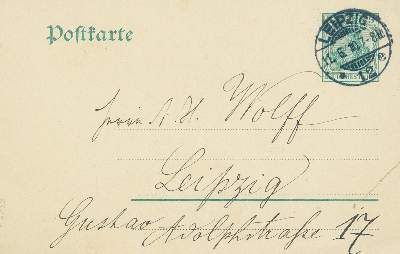 Postkarte
LEIPZIG
Herrn A. H. Wolff
Leipzig
Gustav Adolphstraße 17